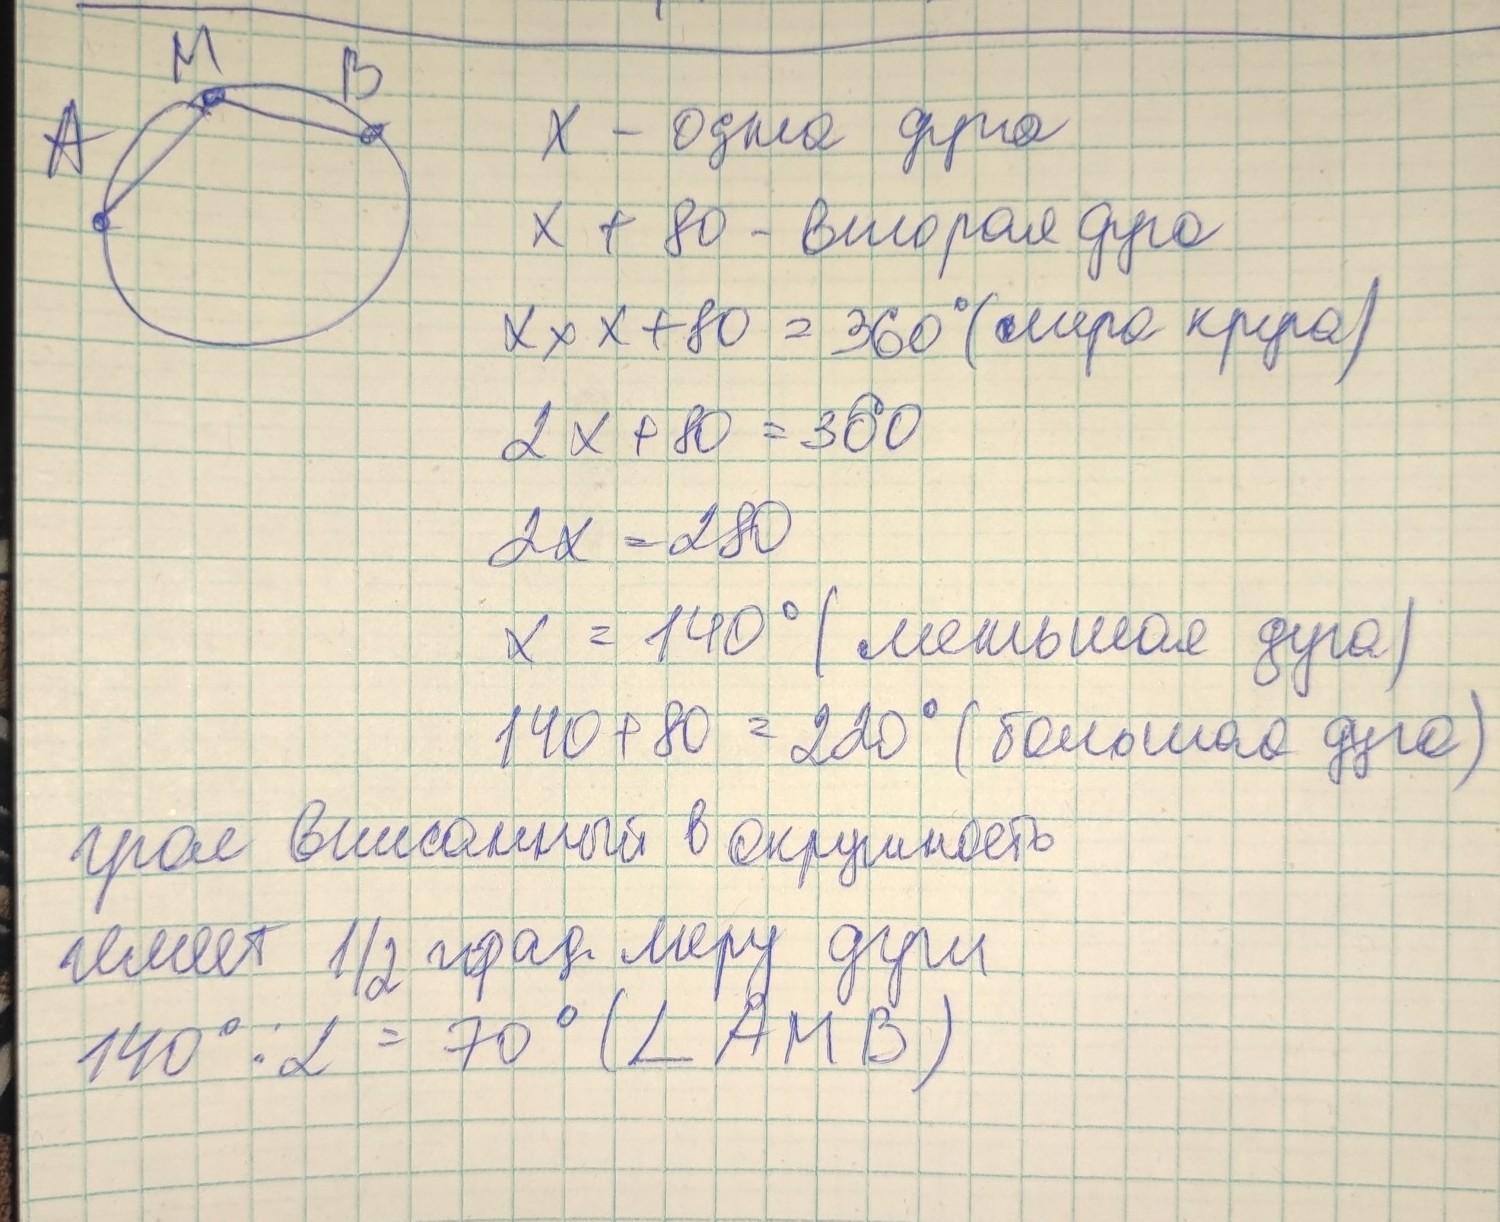 М
В
А
х - одна дуга
х + 80 - вторая дуга
х + х + 80 = 360° (мера круга)
2х + 80 = 360
2х = 280
х = 140° (меньшая дуга)
140 + 80 = 220° (большая дуга)
угол вписанный в окружность
имеет 1/2 град. меру дуги
140° : 2 = 70° (∠ АМВ)